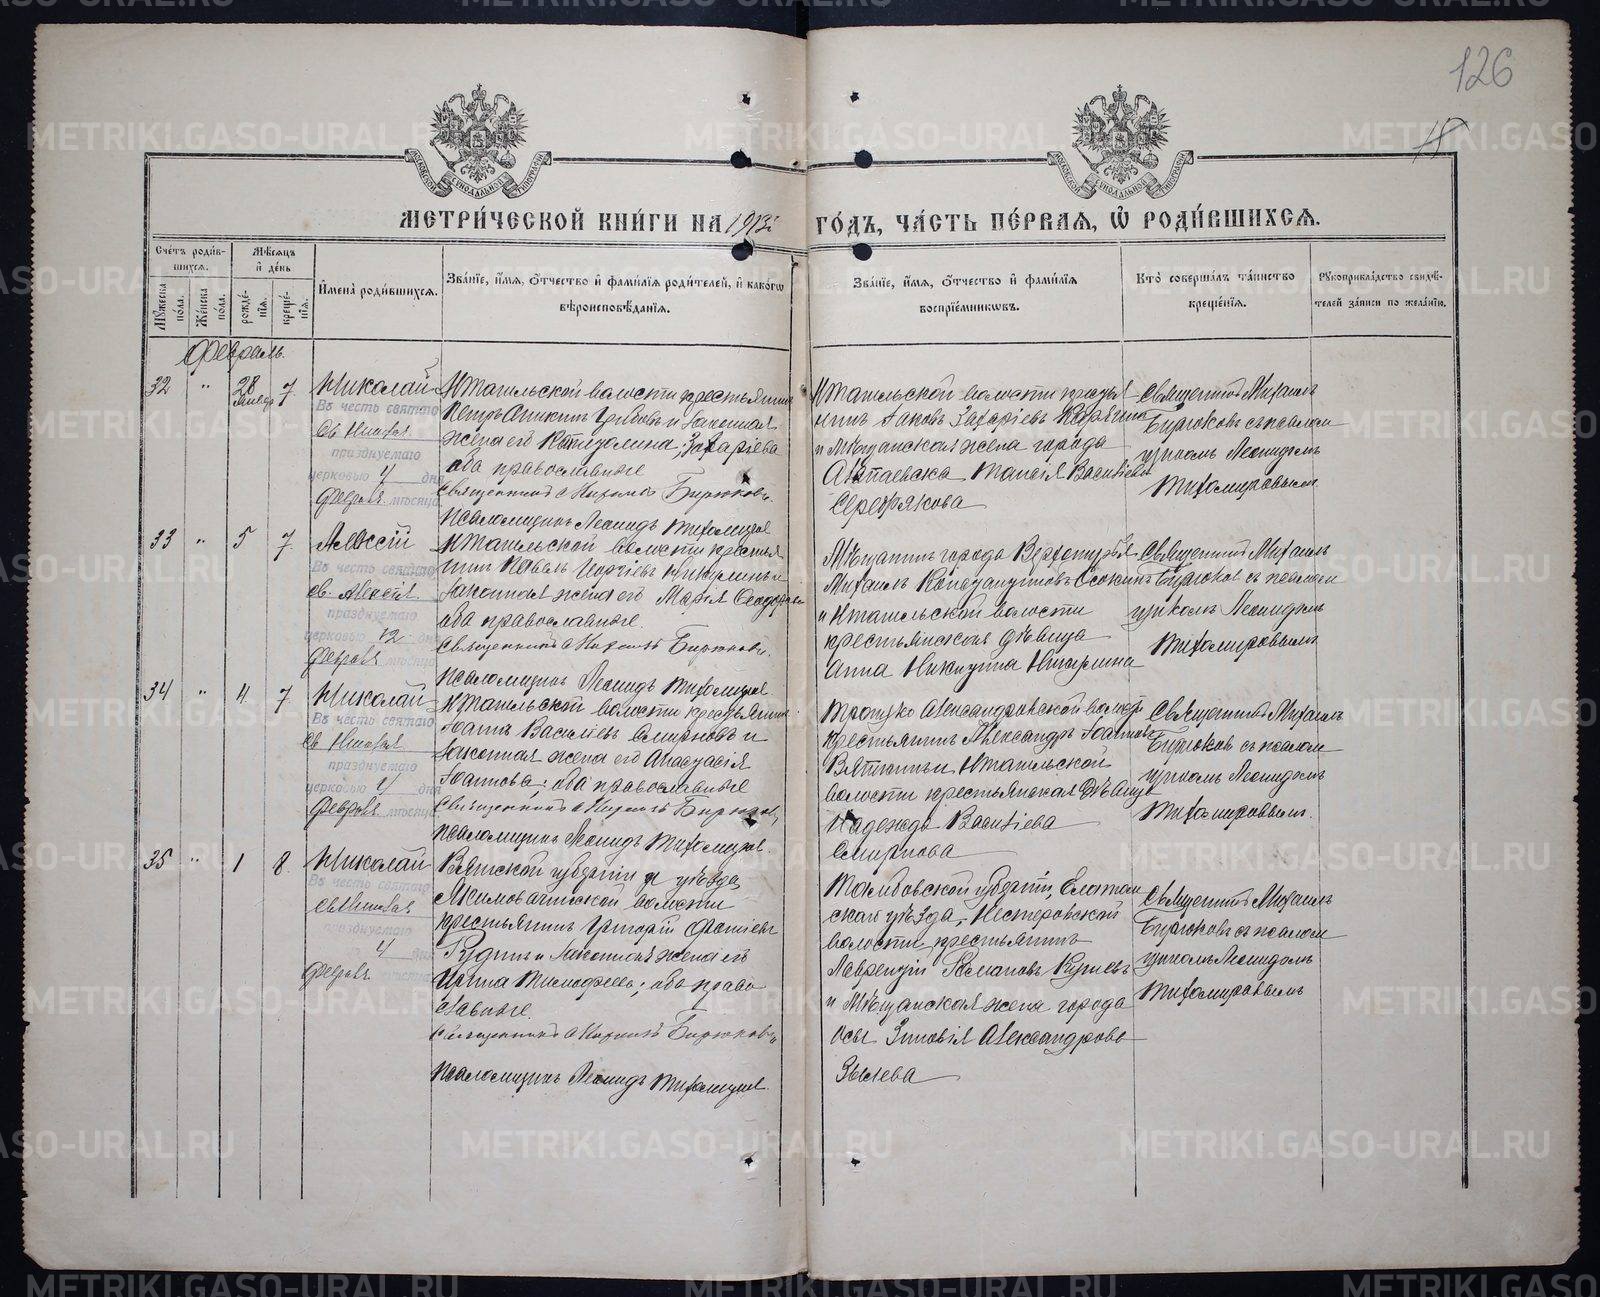 126
МЕТРИ́ЧЕСКОЙ КНИ́ГИ НА 1913 ГО́ДЪ, ЧА́СТЬ ПЕ́РВАЯ, Ѡ РОДИ́ВШИХСЯ.
Сче́тъ роди́в-
шихся.
Мѣ́сяцъ
и де́нь
Му́жеска
пола.
Же́нска
по́ла.
рожде́-
нїя.
креще́-
нїя.
И҆мена̀ роди́вшихся.
Зва́нїе, и҆́мя, ѻ҆́тчество и҆ фами́лїя роди́телей, и҆ како́гѡ
вѣроисповѣ́данїя.
Зва́нїе, и҆́мя, ѻ҆́тчество и҆ фами́лїя
воспрїе́мникѡвъ.
Кто̀ соверша́лъ та́инство
креще́нїя.
Рꙋкоприкла́дство свидѣ́-
телей за́писи по жела́нїю.
Февраль.
32 " 28 Январ 7
Николай
Въ честь святаго
Св Николая
празднуемаго
церковью 4 дня
Февраля мѣсяца
Н Тагильской волости крестьянинъ
Петръ Грибовъ и законная
жена его Захарьева
оба православные
Священникъ Михаилъ Бирюковъ.
Псаломщикъ Леонидъ Тихомировъ
Н Тагильской волости кресть-
янинъ Іаковъ Захаріевъ
и Мѣщанская жена города
Алапаевска Таисія Василіева
Серебрякова
Священникъ Михаилъ
Бирюковъ съ псалом
щикомъ Леонидомъ
Тихомировымъ
33 " 5 7
Алексій
Въ честь святаго
св. Алексія
празднуемаго
церковью 12 дня
Февраля мѣсяца
Н Тагильской волости крестья
нинъ Павелъ и
законная жена его Марія Ѳеодорова
оба православные.
Священникъ Михаилъ Бирюковъ.
Псаломщикъ Леонидъ Тихомировъ
Мѣщанинъ города Верхотурья
Михаилъ
и Н Тагильской волости
крестьянская дѣвица
Анна Никитина
Священникъ Михаилъ
Бирюковъ съ псалом
щикомъ Леонидомъ
Тихомировымъ
34 " 4 7
Николай
Въ честь святаго
Св Николая
празднуемаго
церковью 4 дня
Февраля мѣсяца
Н Тагильской волости крестьянинъ
Іоаннъ Василіевъ Смирновъ и
законная жена его Анастасія
Іоаннова; оба православные
Священникъ Михаилъ Бирюковъ,
Псаломщикъ Леонидъ Тихомировъ.
Троицко Александровской волости
крестьянинъ Александръ Іоанновъ
Вяткинъ и Н Тагильской
волости крестьянская дѣвица
Надежда Василіева
Смирнова
Священникъ Михаилъ
Бирюковъ съ псалом
щикомъ Леонидомъ
Тихомировымъ.
35 " 1 8
Николай
Въ честь святаго
Св Николая
празднуемаго
4 дня
Февраля
Вятской губерніи и уѣзда,
волости
крестьянинъ Григорій
и законная жена его
Ирина Тимофеева; оба право
славные.
Священникъ Михаилъ Бирюковъ
Псаломщикъ Леонидъ Тихомировъ
Тамбовской губерніи, Елатом
скаго уѣзда, Нестеровской
волости крестьянинъ
Лаврентій Романовъ
и Мѣщанская жена города
Осы Зиновія Александрова
Зыкова
Священникъ Михаилъ
Бирюковъ съ псалом
щикомъ Леонидомъ
Тихомировымъ
METRIKI.GASO-URAL.RU